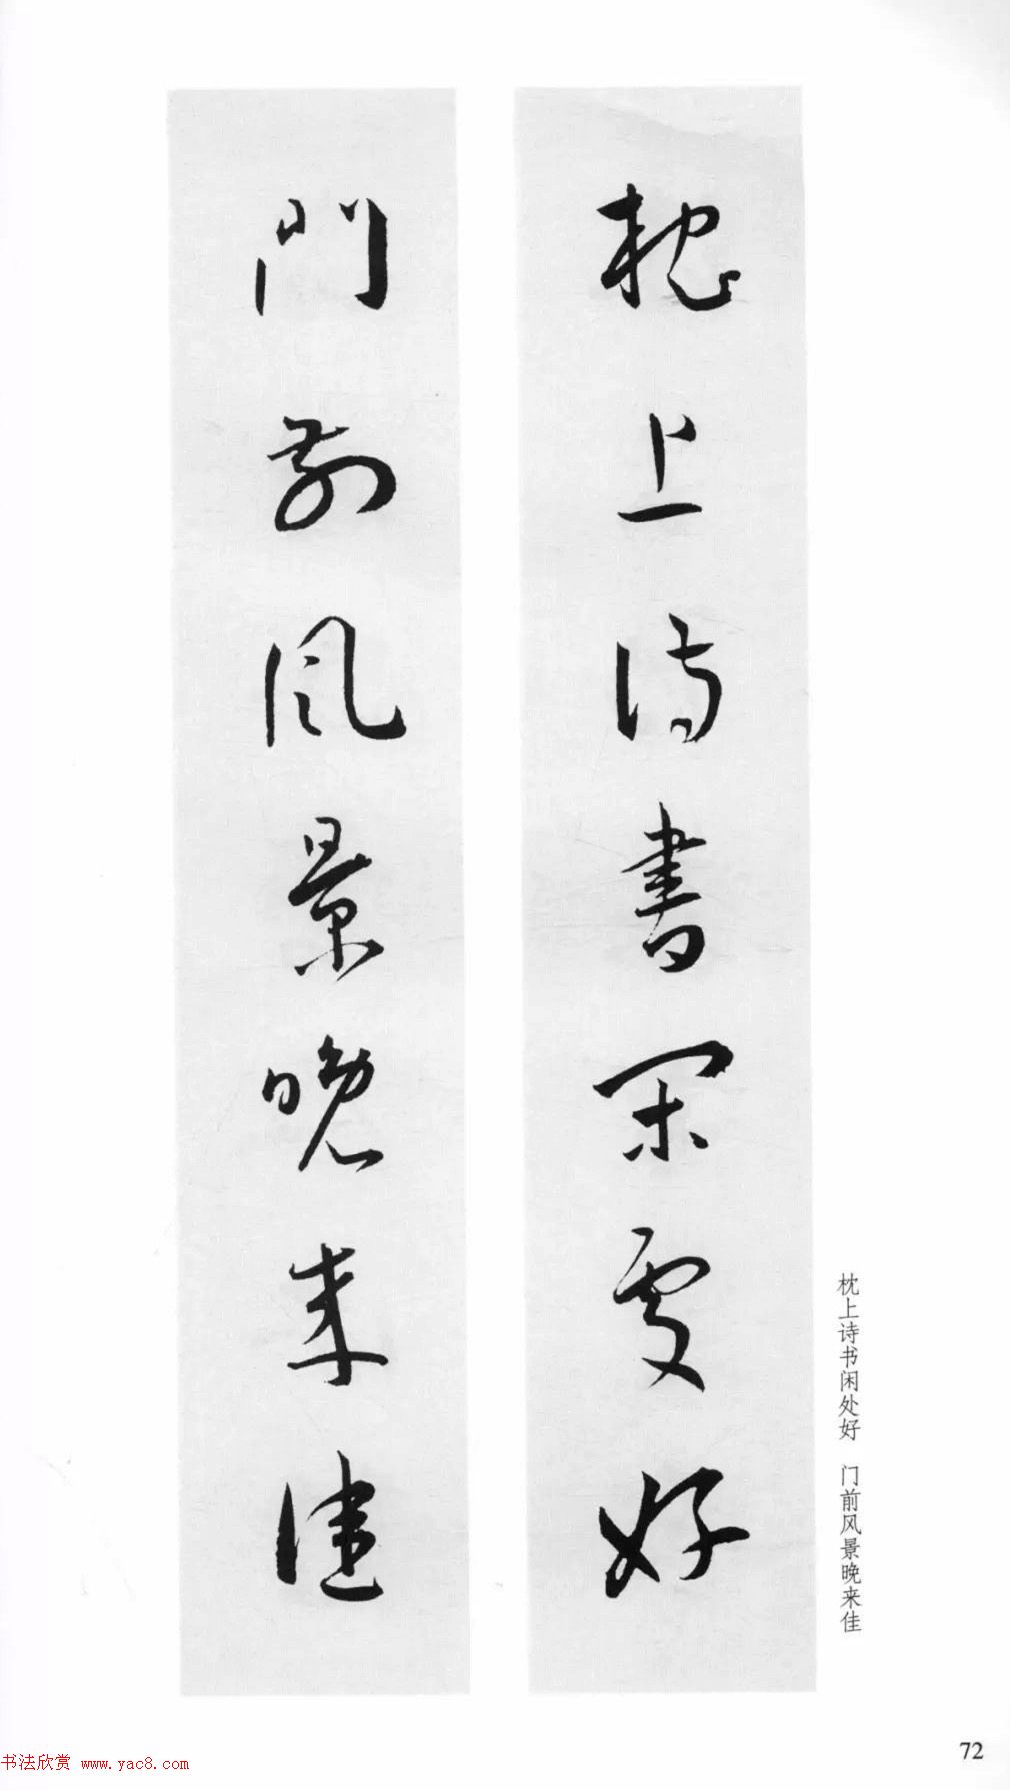 枕上诗書闲處好
門前风景晚来佳
枕上诗书闲处好　门前风景晚来佳
72
书法欣赏 www.yac8.com